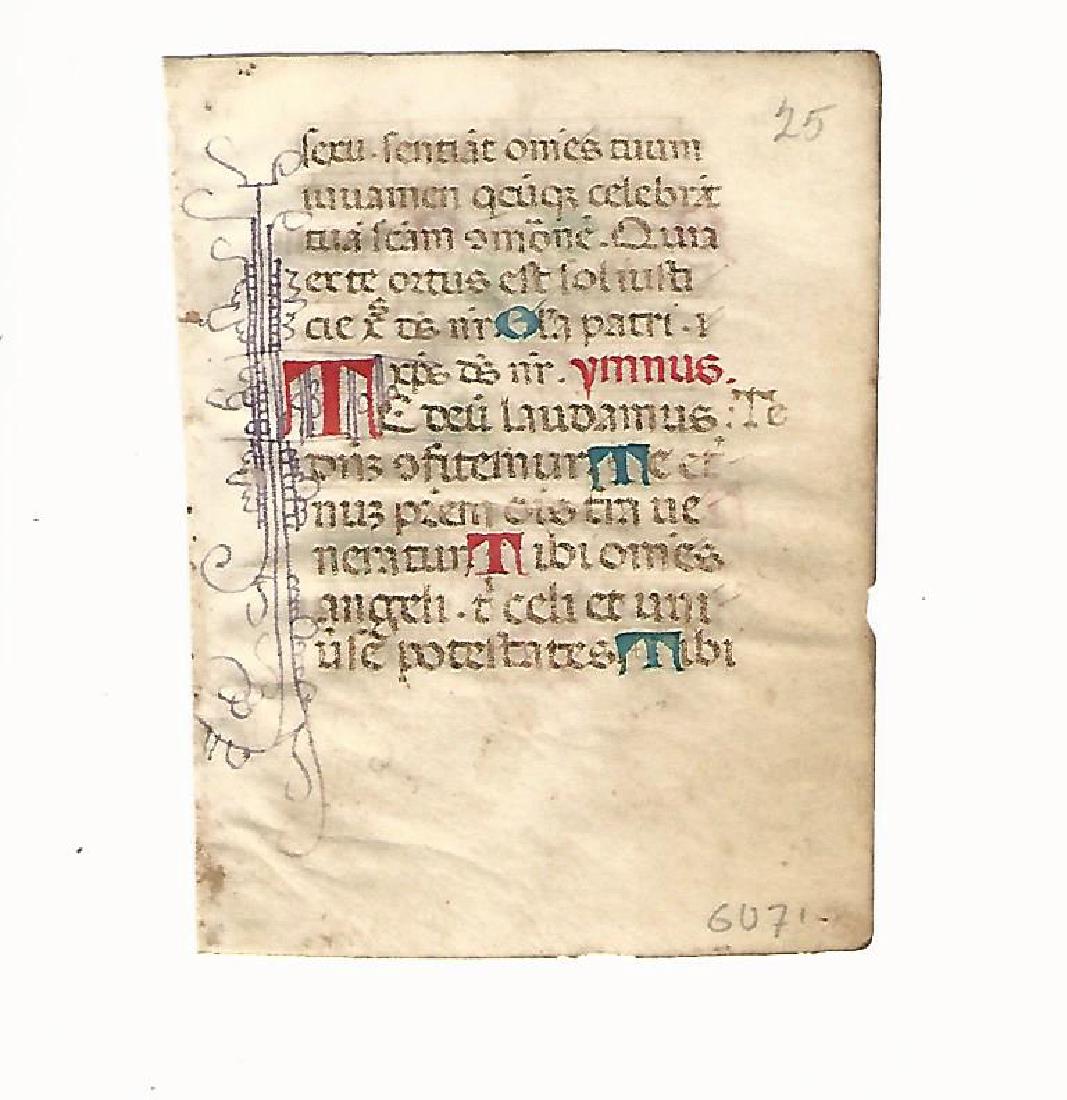 25
sexu. sentiāt om̄es tuum
iuuamen q̄cūqꝫ celebrāt
tuā scām ꝯmōnē. Quia
ex te ortus est sol iusti
cie xp̄s ds̄ nr̄ Gl̄a patri. i
xp̄s ds̄ nr̄. ymnus.
TE deū laudamus: Te
dn̄ꝫ ꝯfitemur Te et
nuꝫ prēm om̄s tr̄a ue
neratur Tibi om̄es
angeli. t̄ celi et uni
ūse potestates Tibi
6071-